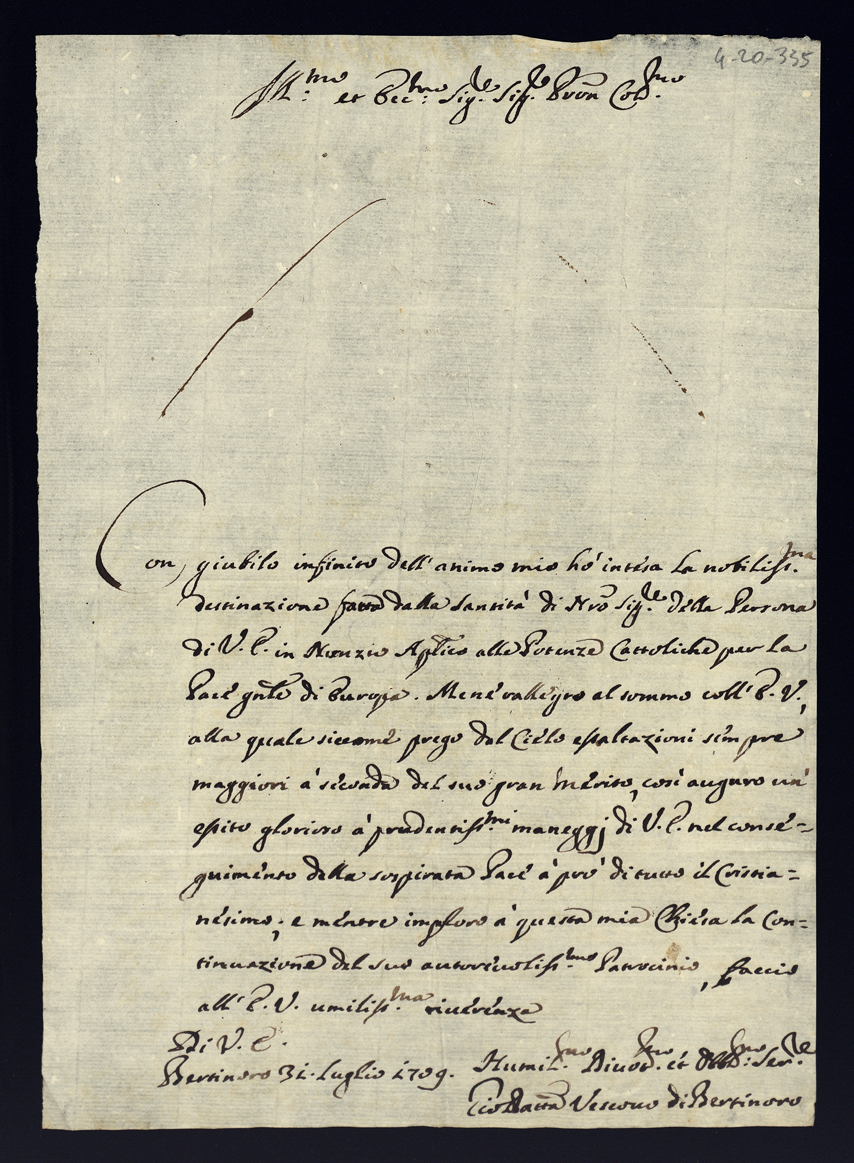 4-20-335
Ill.mo et Ecc.mo Sig.re Sig.re Pron Col.mo
Con giubilo infinito dell'animo mio hò intesa la nobiliss.ma
destinazione fatta dalla Santità di Nrõ Sig.re della Persona
di V. E. in Nunzio Aplico alle Potenze Cattoliche per la
Pace gnle di Europa. Me ne rallegro al sommo coll'E. V.,
alla quale siccome prego dal Cielo essaltazioni sempre
maggiori à seconda del suo gran merito, così auguro un'
esito glorioso à prudentiss.mi maneggj di V. E. nel conse=
guimento della sospirata Pace à prò di tutto il Cristia=
nesimo; e mentre imploro à questa mia Chiesa la Con=
tinuazione del suo autorevoliss.mo Patrocinio, faccio
all'E. V. umiliss.ma riverenza
Di V. E.
Bertinoro 31. Luglio 1709.
Humil.mo Divot.mo et Obb.mo Ser.re
Gio Batta Vescovo di Bertinoro